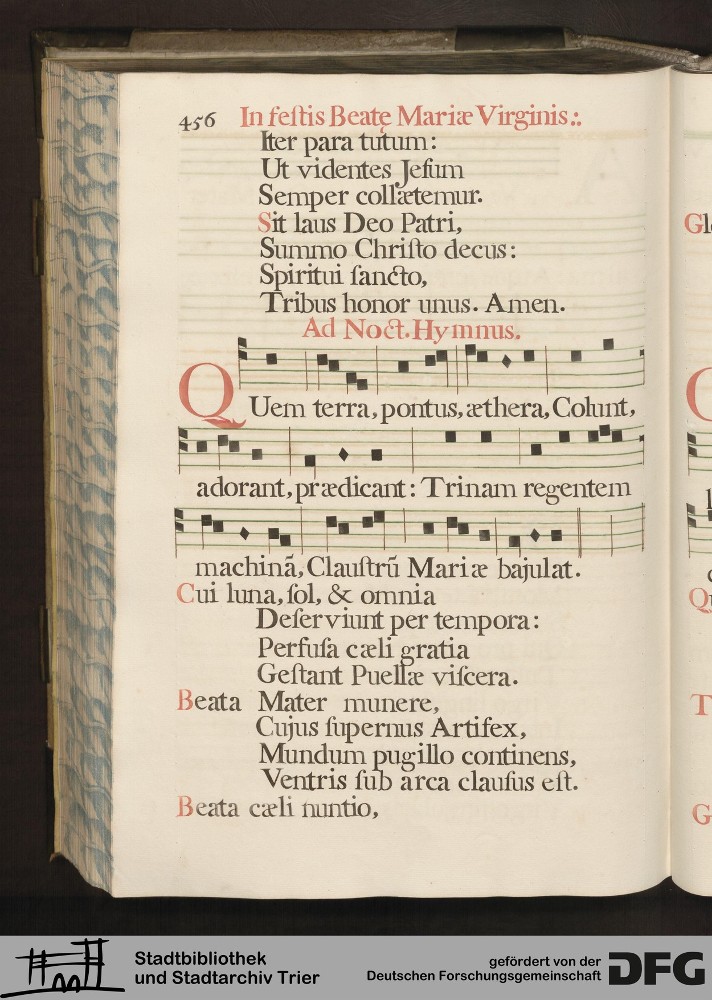 456 In feſtis Beatę Mariæ Virginis:.
Iter para tutum:
Ut videntes Jeſum
Semper collætemur.
Sit laus Deo Patri,
Summo Chriſto decus:
Spiritui ſancto,
Tribus honor unus. Amen.
Ad Noct. Hymnus.
QUem terra, pontus, æthera, Colunt,
adorant, prædicant: Trinam regentem
machinã, Clauſtrũ Mariæ bajulat.
Cui luna, ſol, & omnia
Deſerviunt per tempora:
Perfuſa cæli gratia
Geſtant Puellæ viſcera.
Beata Mater munere,
Cujus ſupernus Artifex,
Mundum pugillo continens,
Ventris ſub arca clauſus eſt.
Beata cæli nuntio,
Stadtbibliothek
und Stadtarchiv Trier
gefördert von der
Deutschen Forschungsgemeinschaft
DFG